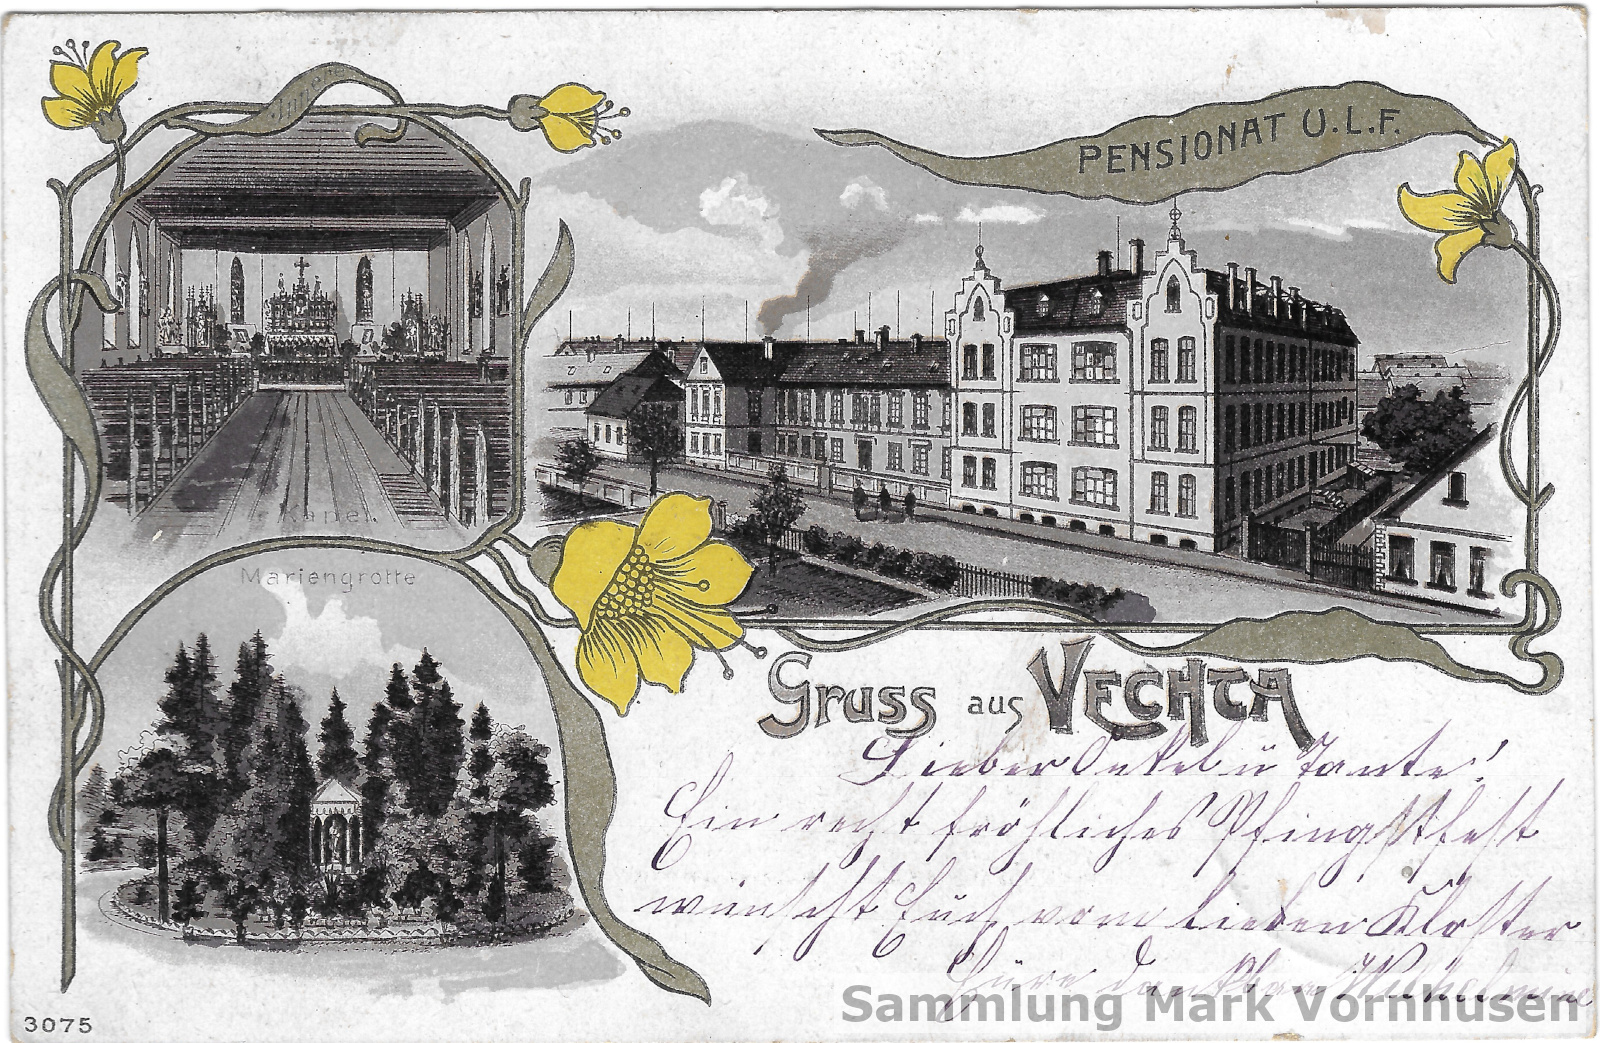 PENSIONAT U.L.F.
Kapel.
Mariengrotte
Gruss aus VECHTA
Lieber Onkel u Tante!
Ein recht fröhliches Pfingstfest
wünscht Euch vom lieben Kloster
Eure dankbar Wilhelmine
Sammlung Mark Vornhusen
3075